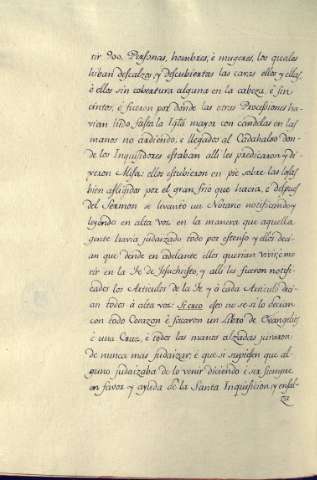 rir 900. Personas, hombres, è mugeres, los quales
iban descalzos, y descubiertas las caras ellos y ellas,
è ellos sin cobertura alguna en la cabeza, è sin
cintos, è fueron por donde las otras Processiones ha-
vian hido, fasta la Iglª mayor con candelas en las
manos no ardiendo; e llegados al Cadahalso don-
de los Inquisidores estaban alli les predicaron y di-
xeron Misa; ellos estubieron en pie sobre las losas
bien afligidos por el gran frio que hacia, è despues
del Sermon se levantò un Notario notificando, y
leyendo en alta voz en la manera que aquella
gente havia judaizado todo por estenso, y ellos deci-
an que dende en adelante ellos querian vivir, e mo-
rir en la Fe de Jesuchristo, y alli les fueron notifi-
cados los Articulos de la Fe, y à cada Articulo deci-
an todos à alta voz: Si creo esto no sè si lo decian
con todo Corazon è sacaron un Libro de Evangelios
è una Cruz, è todos las manos alzadas juraron
de nunca mas judaizar; è que si supiesen que al-
guno judaizaba de lo venir diciendo è ser siempre
en favor y ayuda de la Santa Inquisicion, y ensal-
za